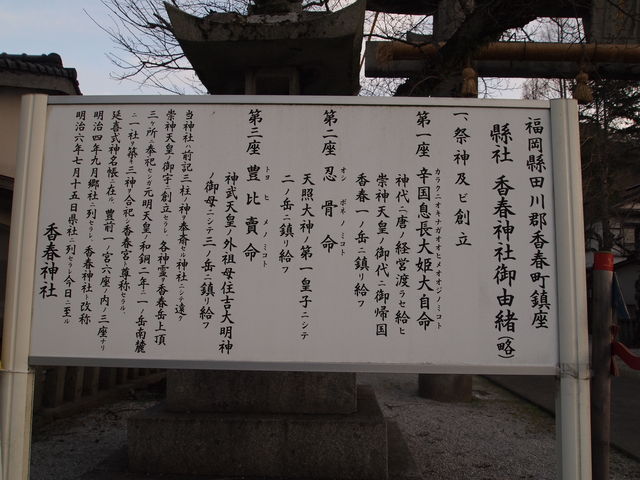 福岡縣田川郡香春町鎮座
縣社 香春神社御由緒(略)
一、祭神及ビ創立
第一座 辛国息長大姫大自命
カラクニオキナガオオヒメオオジノミコト
神代ニ唐ノ経営渡ラセ給ヒ
崇神天皇ノ御代ニ御帰国
香春一ノ岳ニ鎮リ給フ
第二座 忍骨命
オシ ボネ ノミコト
天照大神ノ第一皇子ニシテ
二ノ岳ニ鎮リ給フ
第三座 豊比賣命
トヨ ヒ メ ノミコト
神武天皇ノ外祖母住吉大明神
ノ御母ニシテ三ノ岳ニ鎮リ給フ
当神社ハ前記三柱ノ神ヲ奉斎セル神社ニシテ遠ク
崇神天皇ノ御宇ニ創立セラレ、各神霊ヲ香春岳上頂
三ヶ所ニ奉祀セシガ元明天皇ノ和銅二年ニ一ノ岳南麓
ニ一社ヲ築キ三神ヲ合祀シ香春宮ト尊称セラル、
延喜式神名帳ニ在ル、豊前一ノ宮六座ノ内ノ三座ナリ
明治四年九月郷社ニ列セラレ、香春神社ト改称
明治六年七月十五日県社ニ列セラレ今日ニ至ル
香春神社